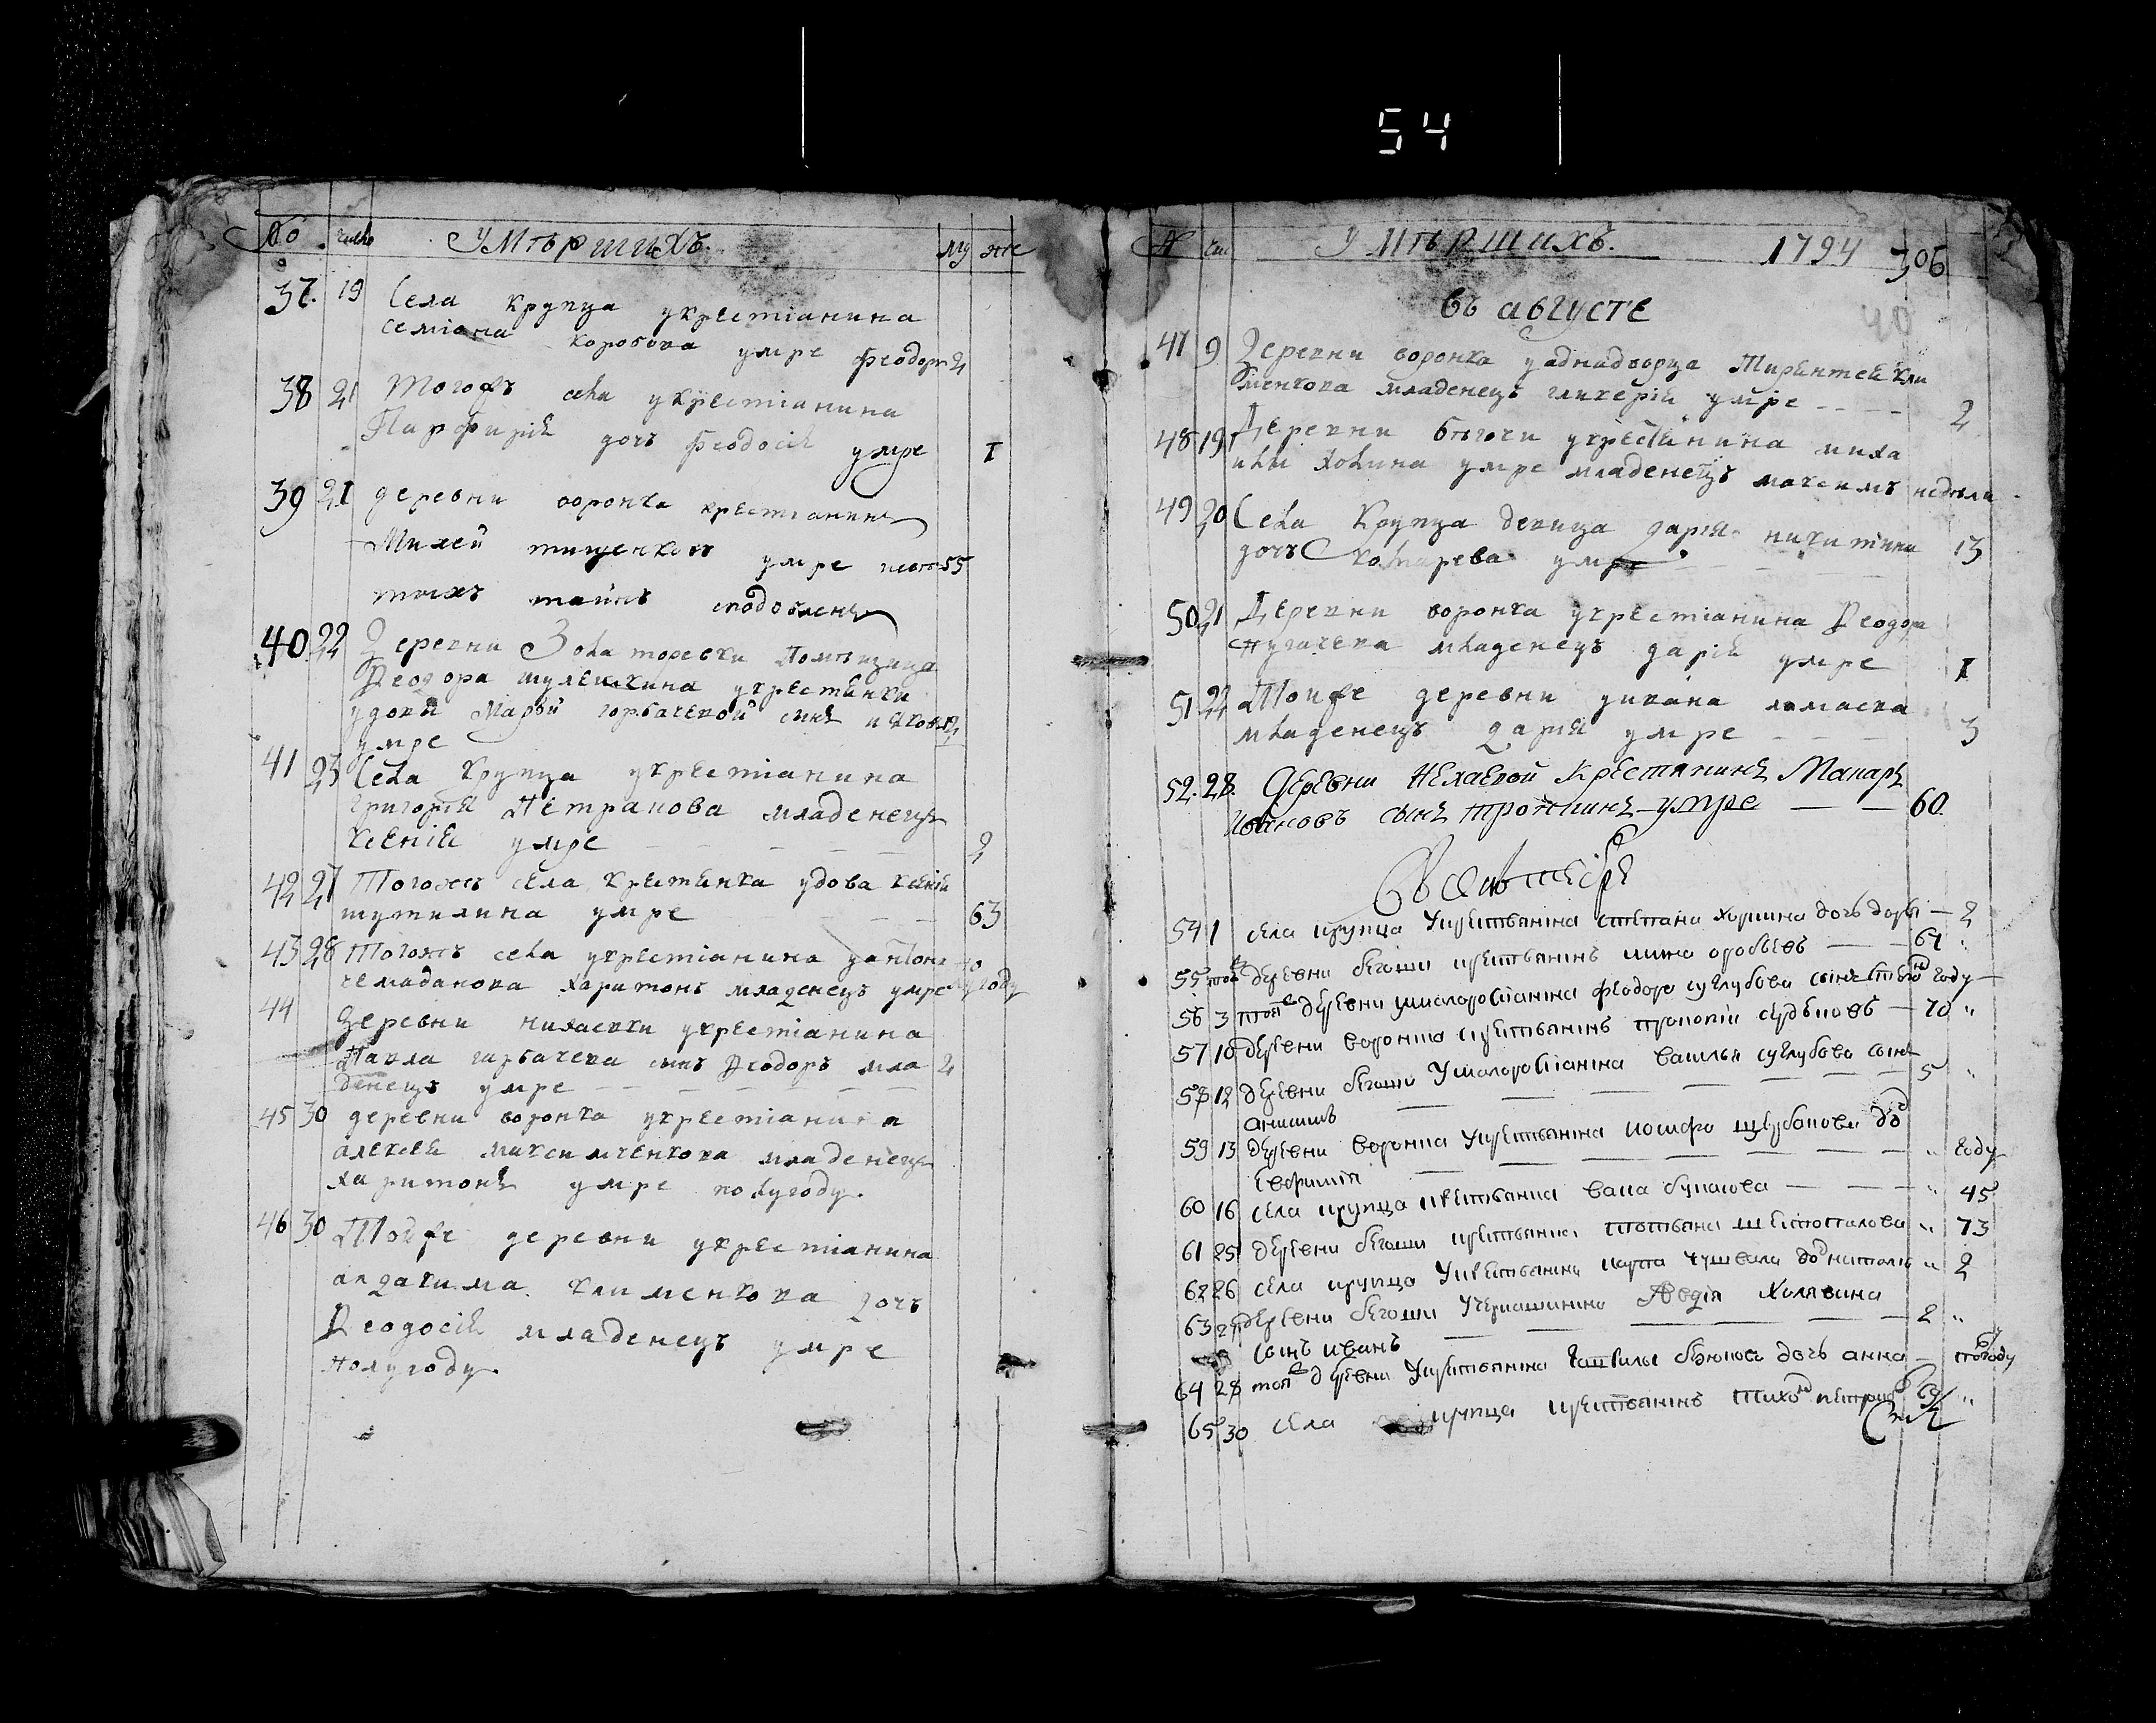 54
№ число умершихъ. му же
37. 19 Села крупца укрестіанина
семіона коробова умре феодоръ 2
38 21 Тогожъ села укрестіанина
Парфирія дочь феодосія умре 1
39 21 деревни воронка крестіанинъ
Михей тищенковъ умре 55
тыхъ тайнъ сподобленъ
40 22 Деревни Золоторевки помѣщица
Феодора укрестянки
удовы Марьи горбачевой сынъ
умре
41 23 Села крупца укрестіанина
григорія Петракова младенецъ
ксенія умре 2
42 27 Тогожъ села крестянка удова ксенія
шутилина умре 63
43 28 Тогожъ села укрестіанина уантона
чемаданова харитонъ младенецъ умре году
44 деревни нихаевки укрестіанина
Павла гарбачева сынъ Феодоръ мла 2
денецъ умре
45 30 деревни воронка укрестіанина
алексея максимченкова младенецъ
харитонъ умре полугоду.
46 30 Тойже деревни укрестіанина
авдакима клименкова дочь
Феодосія младенецъ умре
полугоду.
№ чис умершихъ. 1794 306
въ августе
40
47 9 Деревни воронка уаднадворца Тирентея кли
менкова младенецъ гликерія умре 2
48 19 Деревни бѣгочи укрестянина миха
илы умре младенецъ максимъ недѣли
49 20 Села Крупца девица дарія никитина
дочь умре 13
50 21 Деревни воронка укрестіанина Феодора
пугачева младенецъ дарія умре 1
51 22 Тойже деревни
младенецъ дарія умре 3
52. 28. Деревни Нехаевой Крестянинъ Макаръ
Ивановъ сынъ умре 60.
Въ сентебре
54 1 села крупца укрестьянина степана дочь 2
55 той деревни бегоши крестьянинъ мина 61
56 3 той деревни умалоросіанина феодора суглубова сынъ году
57 10 деревни воронка крестьянинъ прокопій 70
58 12 деревни бегоши умалоросіанина василья суглубова сынъ 5
анисимъ
59 13 деревни воронка укрестьянина иосифа щербакова до году
евфимія
60 16 села крупца крестьянка васа 45
61 25 деревни бегоши крестьянка татьяна шестопалова 73
62 26 села крупца укрестьянина карпа до 2
63 27 деревни бегоши Авдія Холявина 2
сынъ иванъ
64 28 той деревни укрестьянина дочь анна году
65 30 села крупца крестьянинъ тихо